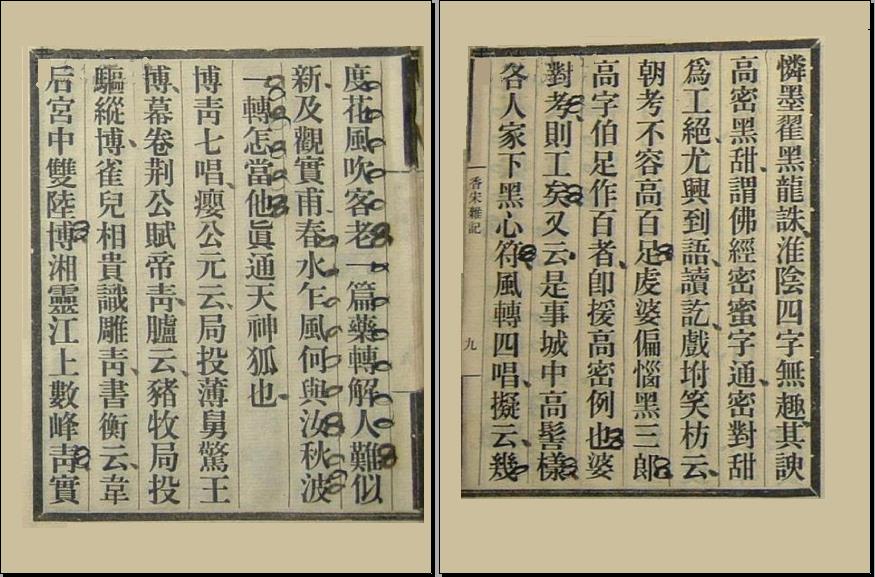 憐墨翟黑龍誅淮陰四字無趣其諛
高密黑甜謂佛經密蜜字通密對甜
爲工絕尤興到語讀訖戲坿笑枋云
朝考不容高百足虔婆偏惱黑三郞
高字伯足作百者卽援高密例也婆
對考則工矣又云是事城中高髻樣
各人家下黑心符風轉四唱擬云幾
香宋雜記
九
度花風吹客老一篇藥轉解人難似
新及觀實甫春水乍風何與汝秋波
一轉怎當他眞通天神狐也
博靑七唱癭公元云局投薄舅驚王
博幕卷荆公賦帝靑臚云豬牧局投
驅縱博雀兒相貴識雕靑書衡云韋
后宮中雙陸博湘靈江上數峰靑實